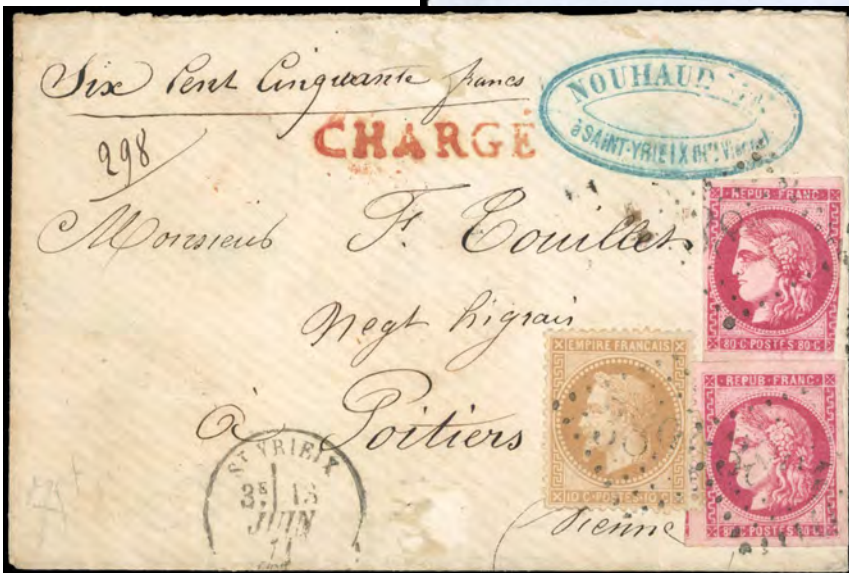 Six Cent Cinquante francs
NOUHAUD
à SAINT-YRIEIX (Hte Vienne)
CHARGÉ
298
Monsieur F. Touillet
Negt
à Poitiers
Vienne
REPUB·FRANC·
80 C·POSTES·80 C·
EMPIRE FRANÇAIS
10 C·POSTES·10 C·
REPUB·FRANC·
80 C·POSTES·80 C·
ST YRIEIX
3E 18
JUIN
71